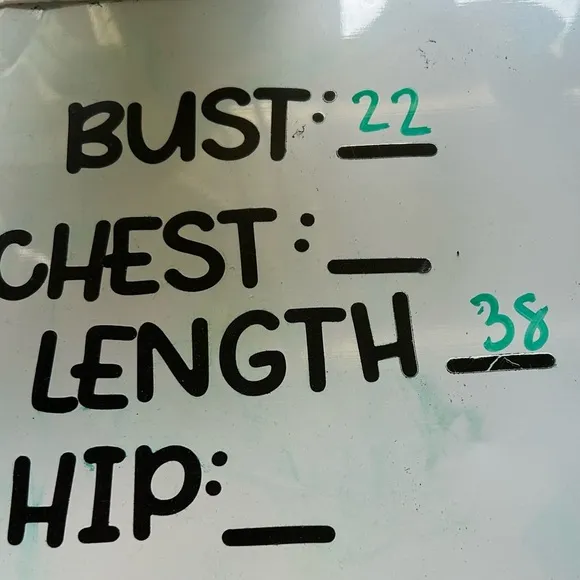 BUST: 22
CHEST: __
LENGTH 38
HIP: __